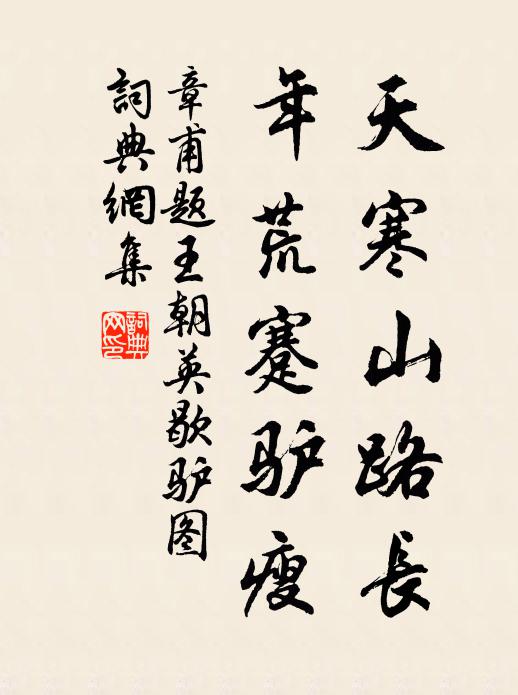 天寒山路長
年荒蹇驴瘦
章甫题王朝英歇驴图
詞典網集
詞典网印